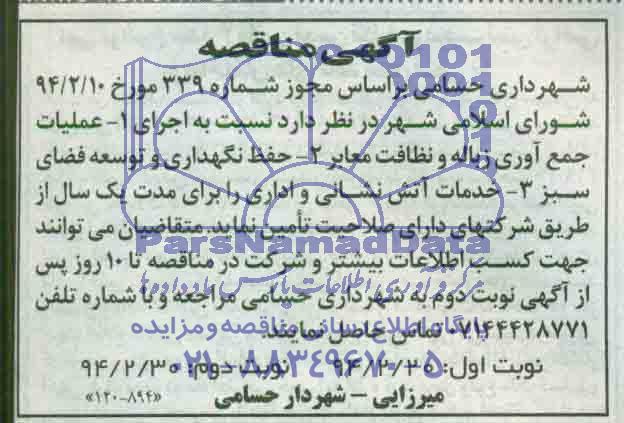 آگهی مناقصه
شهرداری حسامی براساس مجوز شماره ۳۳۹ مورخ ۹۴/۲/۱۰
شورای اسلامی شهر در نظر دارد نسبت به اجرای ۱- عملیات
جمع آوری زباله و نظافت معابر ۲- حفظ نگهداری و توسعه فضای
سبز ۳- خدمات آتش نشانی و اداری را برای مدت یک سال از
طریق شرکتهای دارای صلاحیت تأمین نماید. متقاضیان می توانند
ParsNamadData
جهت کسب اطلاعات بیشتر و شرکت در مناقصه تا ۱۰ روز پس
از آگهی نوبت دوم به شهرداری حسامی مراجعه و با شماره تلفن
۰۷۱۴۴۴۲۸۷۷۱ تماس حاصل نمایند.
پایگاه اطلاع رسانی مناقصه و مزایده
نوبت اول: ۹۴/۲/۲۰ نوبت دوم: ۹۴/۲/۳۰
۰۲۱-۸۸۳۴۹۶۷۰-۵
میرزایی - شهردار حسامی
«۱۲۰-۸۹۴»